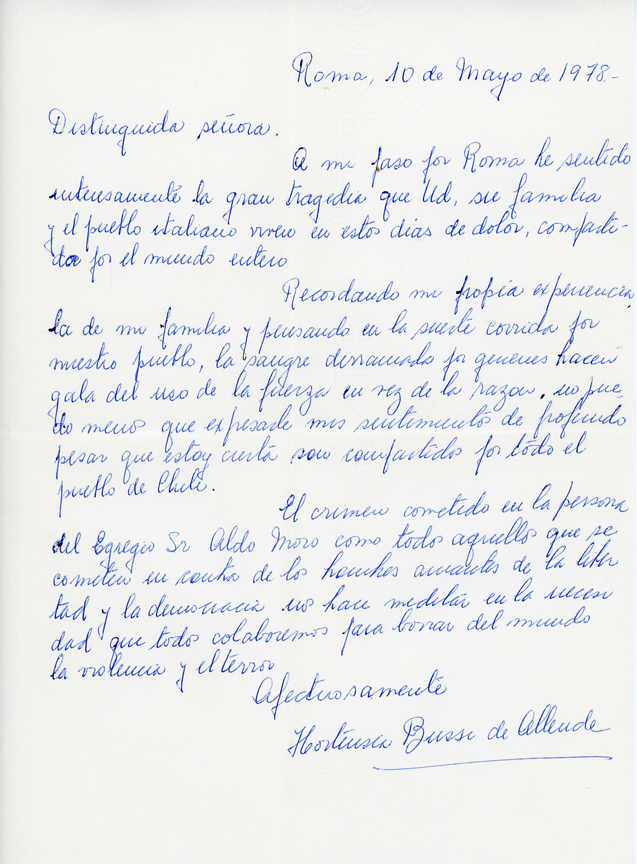 Roma, 10 de Mayo de 1978.-
Distinguida señora.
A mi paso por Roma he sentido
intensamente la gran tragedia que Ud, su familia
y el pueblo italiano viven en estos dias de dolor, comparti-
do por el mundo entero
Recordando mi propia experiencia,
la de mi familia y pensando en la suerte corrida por
nuestro pueblo, la sangre derramada por quienes hacen
gala del uso de la fuerza en vez de la razon, no pue-
do menos que expresarle mis sentimientos de profundo
pesar que estoy cierta son compartidos por todo el
pueblo de Chile.
El crimen cometido en la persona
del Egregio Sr Aldo Moro como todos aquellos que se
cometen en contra de los hombres amantes de la liber
tad y la democracia nos hace meditar en la necesi
dad que todos colaboremos para borrar del mundo
la violencia y el terror
Afectuosamente
Hortensia Bussi de Allende